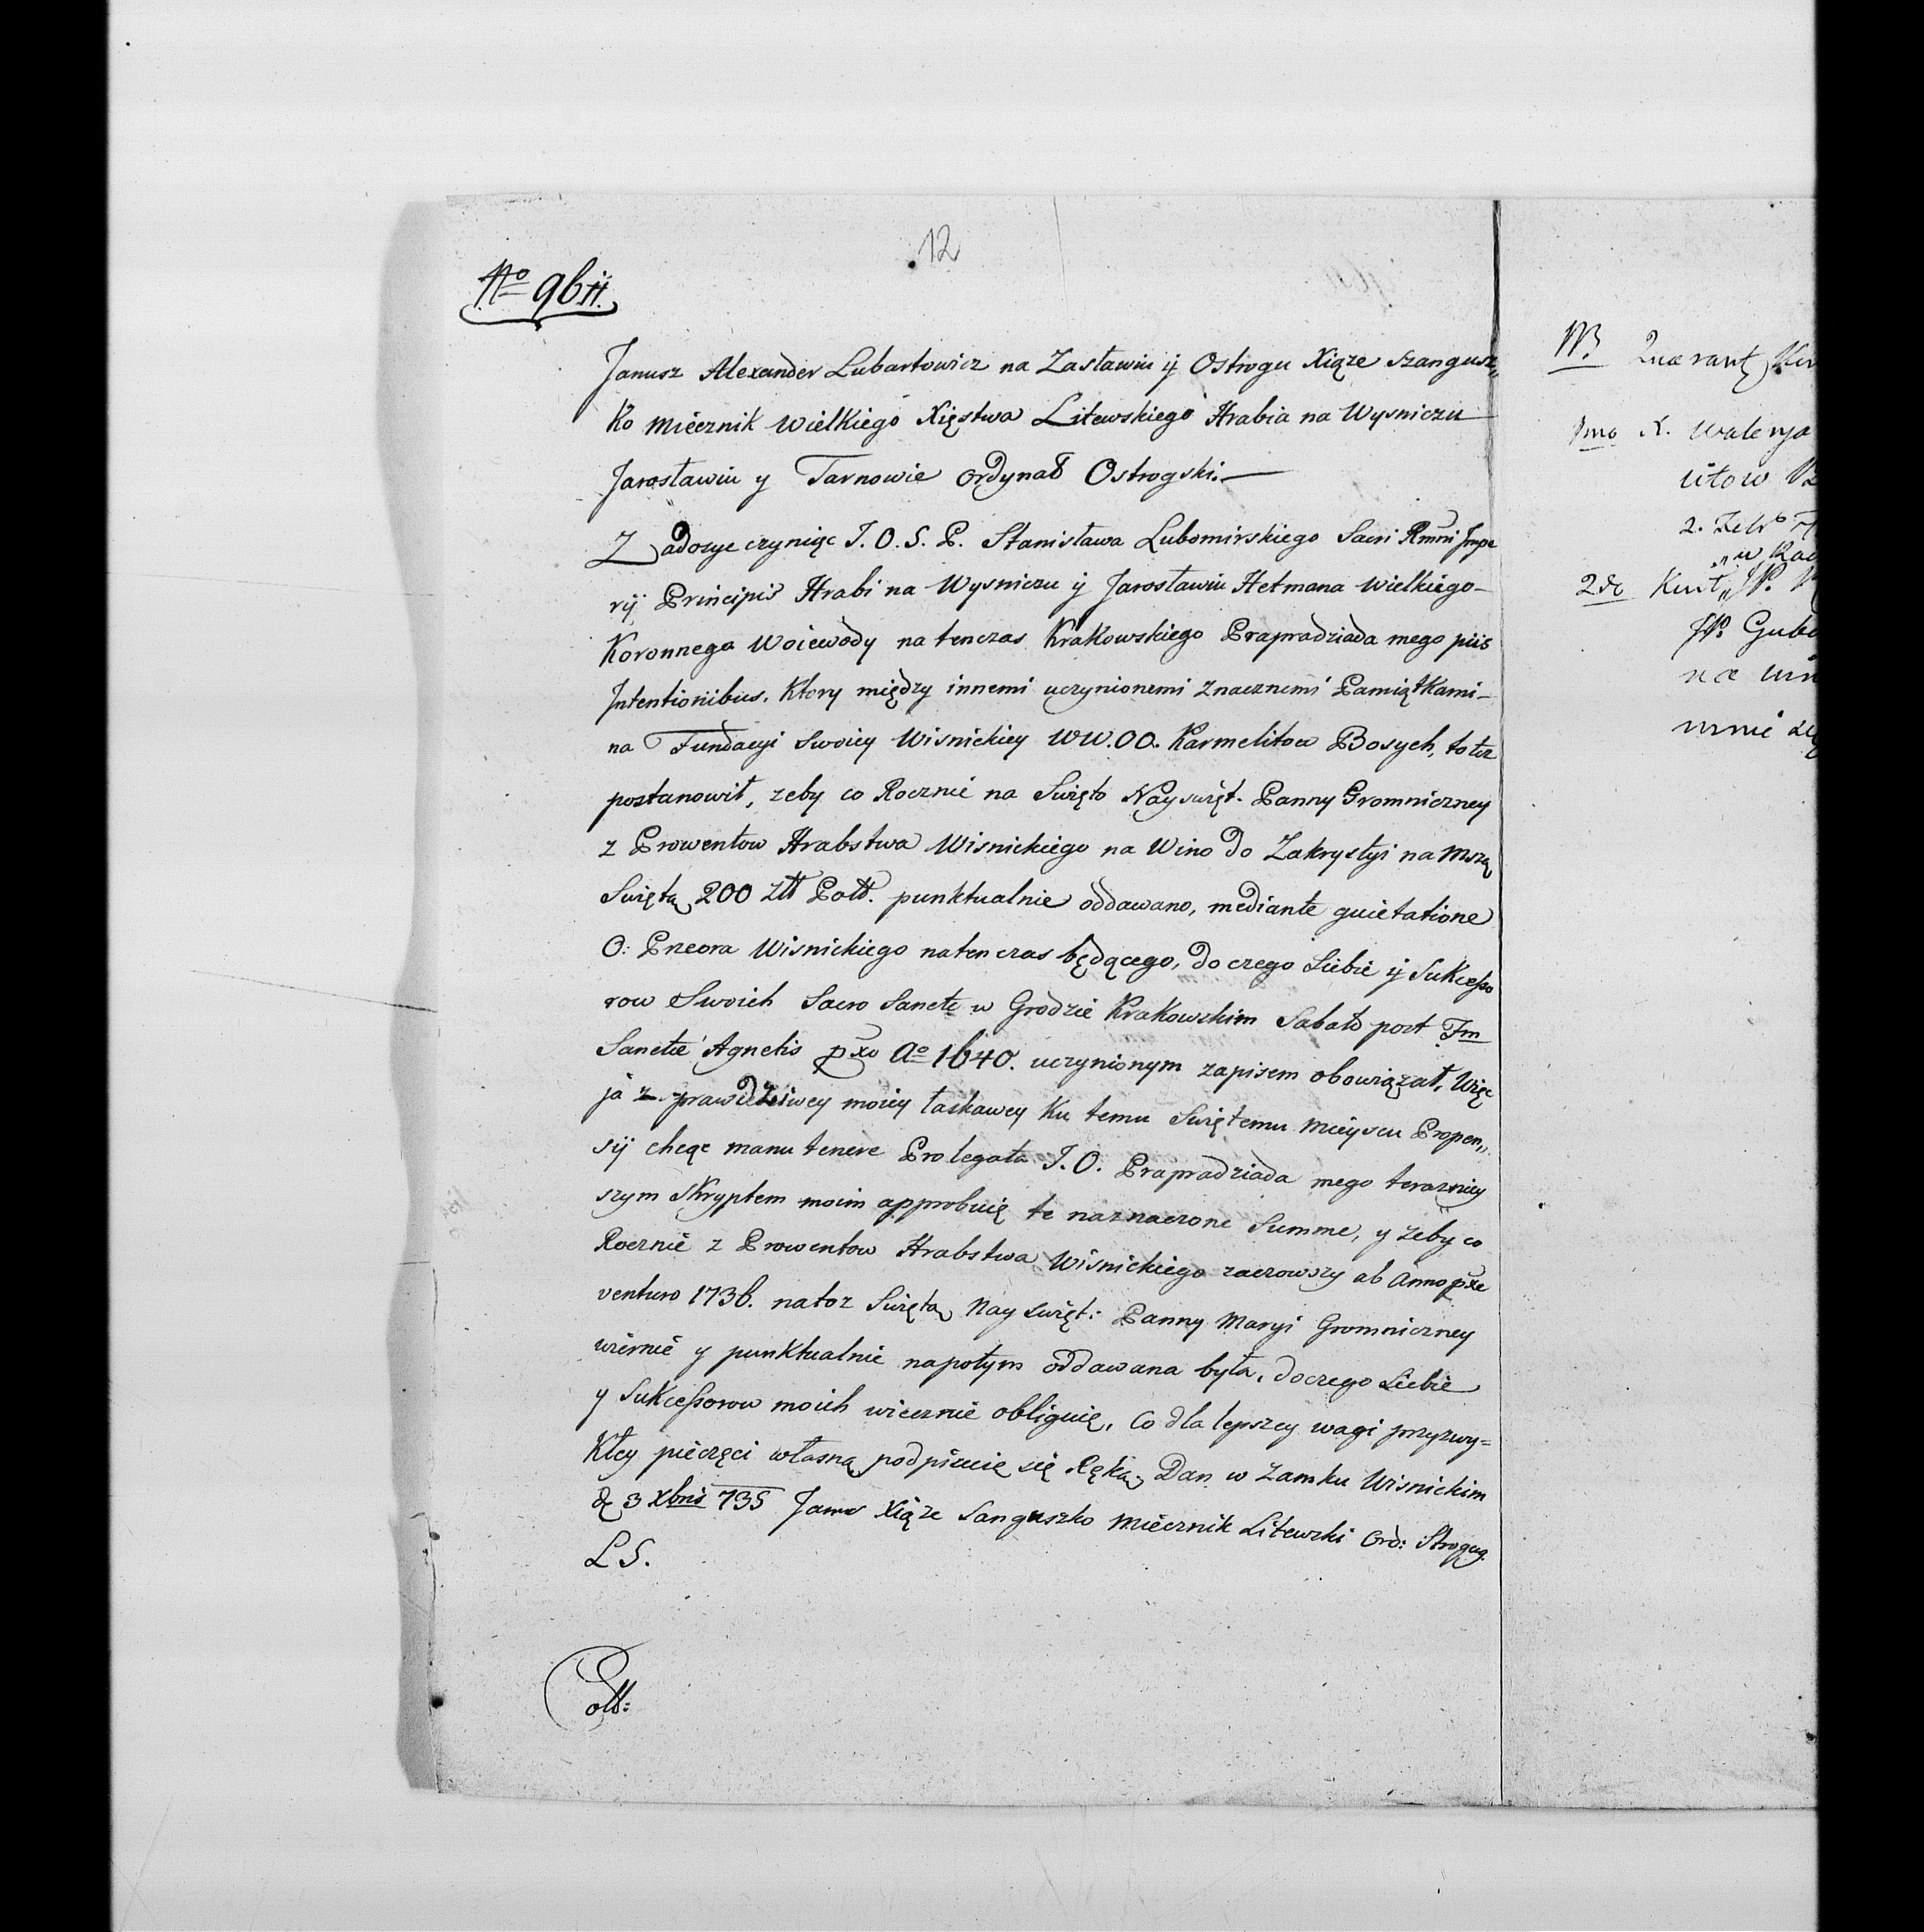 12
No 96ii.
Janusz Alexander Lubartowicz na Zasławiu ÿ Ostrogu Xiąze Szangusz„
Ko Miecznik Wielkiego Xięstwa Litewskiego Hrabia na Wysniczu
Jarosławiu y Tarnowie Ordynat Ostrogski.—
Zadosyc czyniąc J. O. S. P. Stanisława Lubomirskiego Sacri Rmni Impe
rÿ Principis Hrabi na Wysniczu ÿ Jarosławiu Hetmana Wielkiego-
Koronnego Woiewody na tenczas Krakowskiego Prapradziada mego piis
Intentionibus. Ktory między innemi uczynionemi znacznemi Pamiątkami-
na Fundacyi Swoiey Wisnickiey WW. OO. Karmelitow Bosych, totez
postanowił, zeby co Rocznie na Swięto Nayswięt. Panny Gromniczney
z Prowentow Hrabstwa Wisnickiego na Wino do Zakrystyi na Mszą
Swiętą 200 Ztt Poltt. punktualnie oddawano, mediante quietatione
O: Przeora Wisnickiego natenczas będącego, do czego Siebie ÿ Sukcesso
row Swoich Sacro Sancte w Grodzie Krakowskim Sabato post Fm
Sancte Agnetis pxo Ao 1640. uczynionym zapisem obowiązał, Więc
ja z prawdziwey moiey łaskawey Ku temu Swiętemu Mieyscu Propen„
sÿ chcąc manu tenere Prolegata J. O. Prapradziada mego teraznieÿ
szym Skryptem moim approbuię te naznaczone Summe, y zeby co
Rocznie z Prowentow Hrabstwa Wisnickiego zacrowszy ab Anno pxe
venturo 1736. natoz Swięta Nayswięt: Panny Maryi Gromniczney
wiernie y punktualnie napotym oddawana była, doczego Siebie
y Sukcessorow moich wiecznie obliguię, Co dla lepszey wagi przyzwy=
Kłey pieczęci własną podpisuię się Ręką, Dan w Zamku Wisnickim
d 3 Xbris 735 Janus Xiąze Sanguszko Miecznik Litewski Ord: Strogsg.
L S.
Poltt:
NB Quærant
1mo X. Walerya
utow
2. Febr
2do Kwit„
Gube
næ
mnie